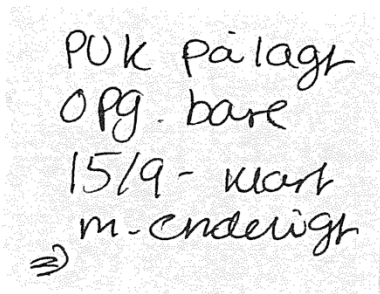 PUK pålagt
opg. bare
15/9 - klart
m. enderligt